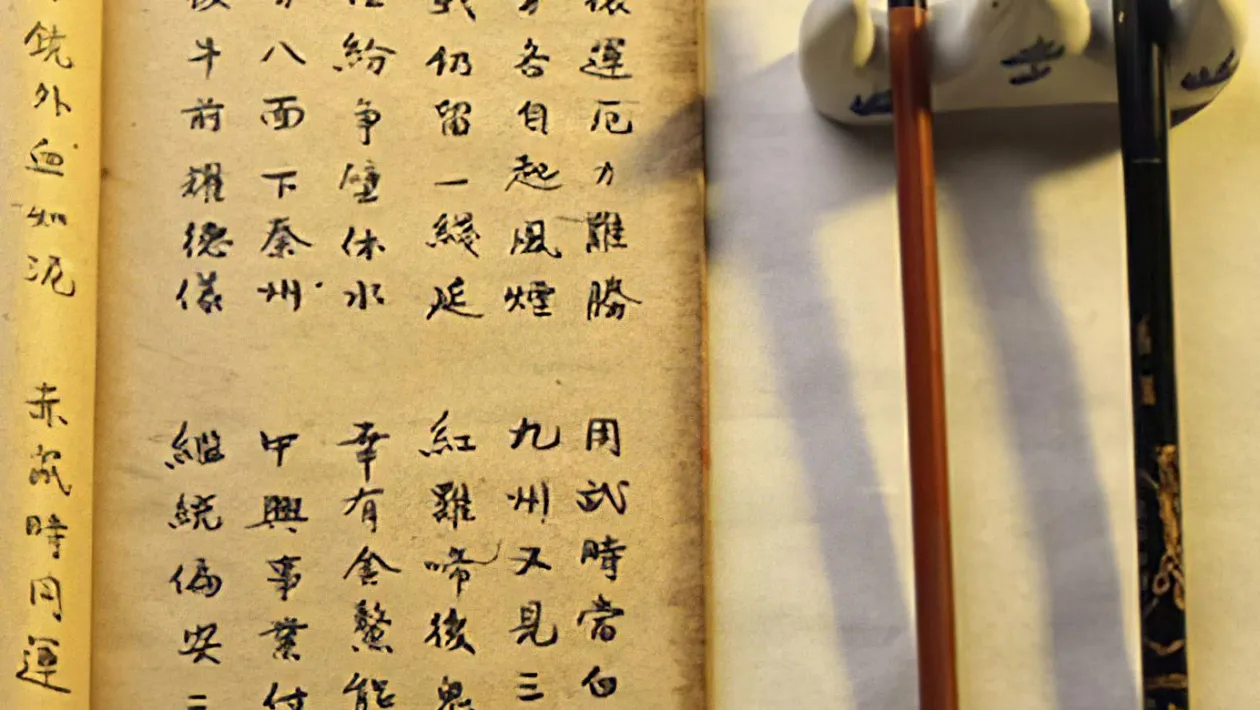 運厄力難勝 用武時當白
各自起風煙 九州又見三
仍留一綫延 紅雞啼後鬼
紛争壁休水 幸有金鰲能
八面下秦州 中興事業付
牛前耀德儀 繼統偏安二
銃外血如泥 赤鼠時同運